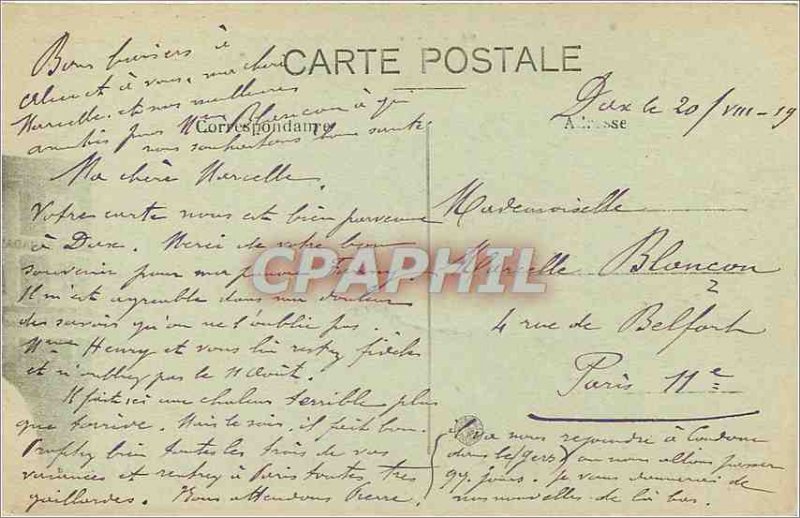 Bons baisers à
et à vous, ma chère
Marcelle et nos meilleures
amitiés pour Mme Blancon à qui
nous souhaitons bonne santé
CARTE POSTALE
Correspondance
Adresse
Dax le 20/VIII-19
Ma chère Marcelle,
Votre carte nous est bien parvenue
à Dax. Merci de votre bon
souvenir pour ma pauvre
Il m'est agréable dans ma douleur
de savoir qu'on ne l'oublie pas.
Mme Henry et vous lui restez fidèles
et n'oubliez pas le 11 Août.
Il fait ici une chaleur terrible plus
que torride. Mais le soir, il fait bon.
Profitez bien toutes les trois de vos
vacances et rentrez à Paris toutes très
gaillardes. Nous attendons Pierre
il va nous rejoindre à Condom
dans le (Gers) où nous allons passer
qq. jours. Je vous donnerai de
nos nouvelles de là bas.
Mademoiselle
Marcelle Blancon
2
4 rue de Belfort
Paris 11e
CPAPHIL